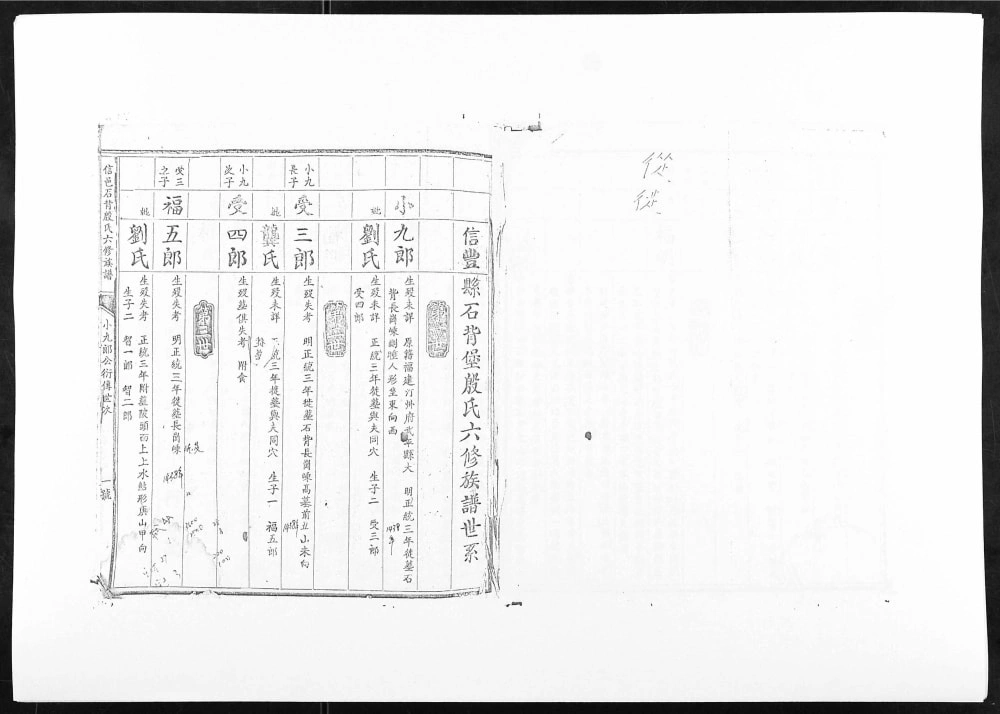 信豐縣石背堡殷氏六修族譜世系
第一世
小九郎
生歿未詳 原籍福建汀州府武平縣大 明正統三年徙墓石
背長崗崠剃瞳人形坐東向西
1438年
妣 劉氏
生歿未詳 正統三年徙墓與夫同穴 生子二 受三郎
受四郎
第二世
小九長子
受三郎
生歿失考 明正統三年徙墓石背長崗崠高墓前丑山未向
妣 龔氏
生歿未詳 正統三年徙墓與夫同穴 生子一 福五郎
小九次子
受四郎
生歿墓俱失考 附食
第三世
受三之子
福五郎
生歿失考 明正統三年徙墓長崗崠
妣 劉氏
生歿失考 正統三年附葬陂頭面上上水蛄形庚山甲向
生子二 智一郎 智二郎
信邑石背殷氏六修族譜
小九郎公衍傳世次
一號